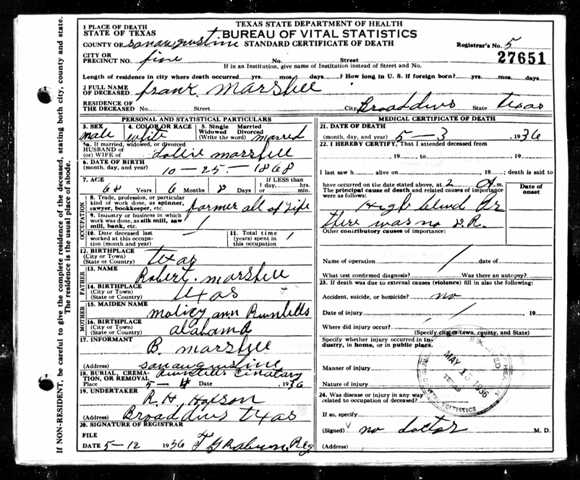 TEXAS STATE DEPARTMENT OF HEALTH
BUREAU OF VITAL STATISTICS
STANDARD CERTIFICATE OF DEATH
1 PLACE OF DEATH
STATE OF TEXAS
COUNTY OF sanaugustine
Registrar's No. 5
27651
CITY OR PRECINCT NO. five No. Street
If in an Institution, give name of Institution instead of Street and No.
Length of residence in city where death occurred yrs. mos. days. How long in U. S. if foreign born? yrs. mos. days
2 FULL NAME OF DECEASED frank marshell
RESIDENCE OF THE DECEASED No. Street City Broaddus State texas
PERSONAL AND STATISTICAL PARTICULARS
3. SEX male
4 COLOR OR RACE white
5 Single Married Widowed Divorced (Write the word) mared
5a If married, widowed or divorced HUSBAND of (or) WIFE of marshell
6 DATE OF BIRTH 10-25-1868
7. AGE 68 Years 6 Months 8 Days If LESS than 1 day, hrs. min.
OCCUPATION
8. Trade, profession, or particular kind of work done, as spinner, sawyer, bookkeeper, etc. farmer all of life
9. Industry or business in which work was done, as silk mill, saw mill, bank, etc.
10. Date deceased last worked at this occupation (month and year)
11. Total time (years) spent in this occupation
12. BIRTHPLACE (City or Town) (State or Country) texas
FATHER
13. NAME Robert. marshell
14. BIRTHPLACE (City or Town) State or Country) texas
MOTHER
15. MAIDEN NAME ann
16. BIRTHPLACE (City or Town) (State or Country) alabama
17. INFORMANT B. marshell
(Address) sanaugustine
18. BURIAL, CREMATION, OR REMOVAL
Place Date 5-4 1936
19. UNDERTAKER R. H. Hopson
(Address) Broaddus texas
20. SIGNATURE OF REGISTRAR
FILE DATE 5-12 1936 Reg
MEDICAL CERTIFICATE OF DEATH
21. DATE OF DEATH
(month, day, and year) 5-3 1936
22. I HEREBY CERTIFY, That I attended deceased
from , 19 to , 19
I last saw h alive on , 19 death is said to
have occurred on the date stated above, at 2 m.
The principal cause of death and related causes of importance were as follows:
Date of onset
High blud
there was no D.R.
Other contributory causes of importance:
Name of operation date of
What test confirmed diagnosis? Was there an autopsy?
23. If death was due to external causes (violence) fill in also the following:
Accident, suicide, or homicide? no
Date of injury 19
Where did injury occur?
(Specify city or town, county, and State)
Specify whether injury occurred in industry, in home, or in public place.
Manner of injury
Nature of injury
MAY 1936
STATISTICS
24. Was disease or injury in any way related to occupation of deceased?
If so, specify
(Signed) no doctor M. D.
(Address)
IF NON-RESIDENT, be careful to give the complete residence of the deceased, stating both city, county and state.
The residence is usual place of abode.